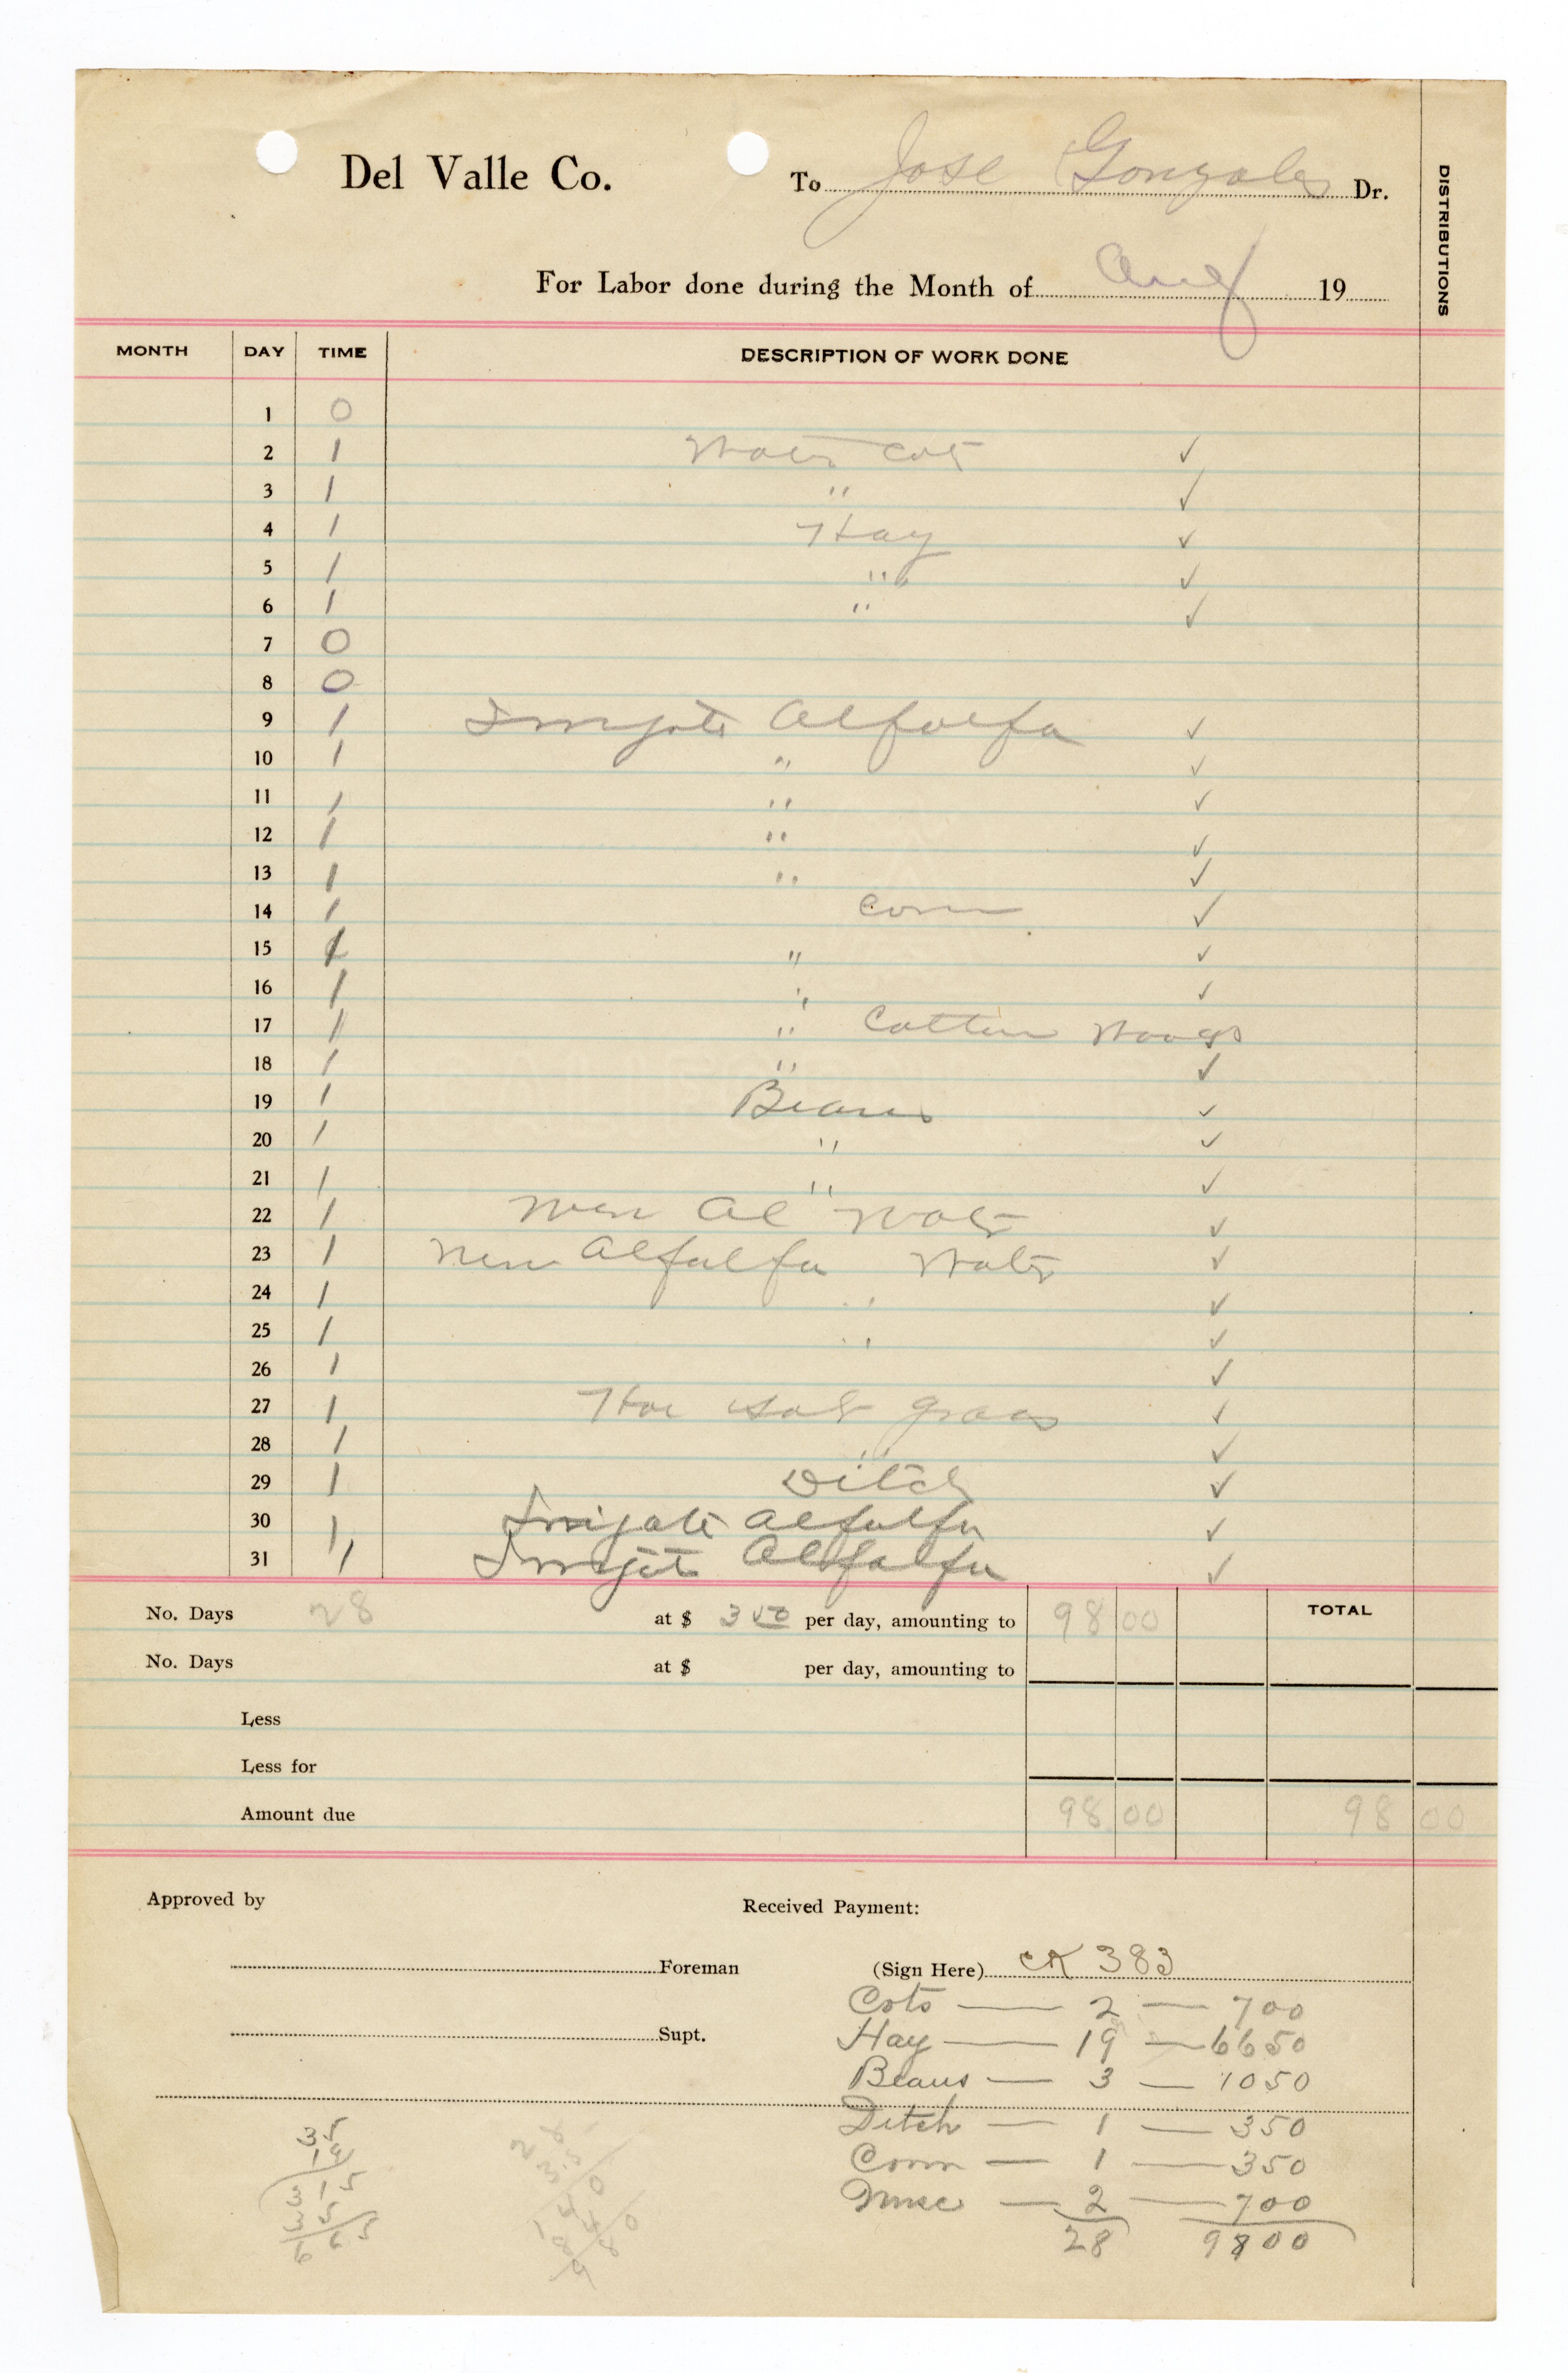 Del Valle Co. To Jose Gonzales Dr.
DISTRIBUTIONS
For Labor done during the Month of Aug 19
MONTH DAY TIME DESCRIPTION OF WORK DONE
1 0
2 1 Water Cots ✓
3 1 " ✓
4 1 Hay ✓
5 1 " ✓
6 1 " ✓
7 0
8 0
9 1 Irrigate Alfalfa ✓
10 1 " ✓
11 1 " ✓
12 1 " ✓
13 1 " ✓
14 1 Corn ✓
15 1 " ✓
16 1 " ✓
17 1 " Cotton Woods
18 1 " ✓
19 1 Beans ✓
20 1 " ✓
21 1 " ✓
22 1 New Al Water ✓
23 1 New Alfalfa Water ✓
24 1 " ✓
25 1 " ✓
26 1 ✓
27 1 Hoe salt grass ✓
28 1 " ✓
29 1 Ditch ✓
30 1 Irrigate Alfalfa ✓
31 1 Irrigate Alfalfa ✓
No. Days 28 at $ 3 50 per day, amounting to 98 00 TOTAL
No. Days at $ per day, amounting to
Less
Less for
Amount due 98 00 98 00
Approved by Received Payment:
Foreman (Sign Here) CK 383
Cots — 2 — 700
Supt. Hay — 19 — 6650
Beans — 3 — 1050
Ditch — 1 — 350
Corn — 1 — 350
Misc — 2 — 700
28 9800
35
19
315
35
665
28
3.50
1400
84
9800